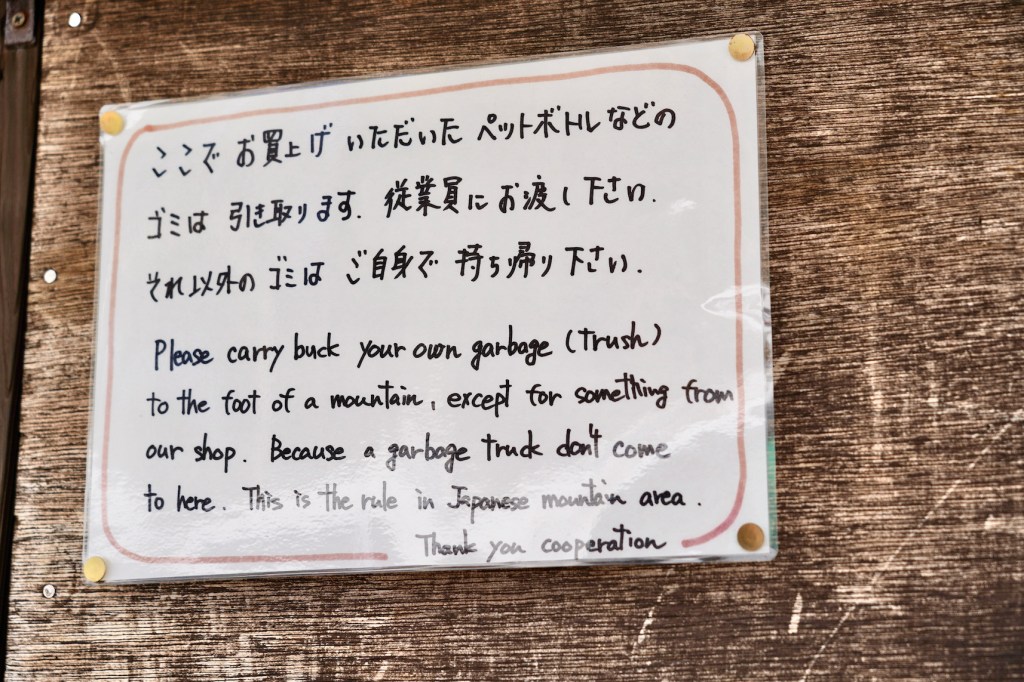 ここで お買上げ いただいた ペットボトルなどの
ゴミは 引き取ります. 従業員にお渡し下さい.
それ以外の ゴミは ご自身で 持ち帰り下さい.
Please carry buck your own garbage (trush)
to the foot of a mountain, except for something from
our shop. Because a garbage truck don't come
to here. This is the rule in Japanese mountain area.
Thank you cooperation